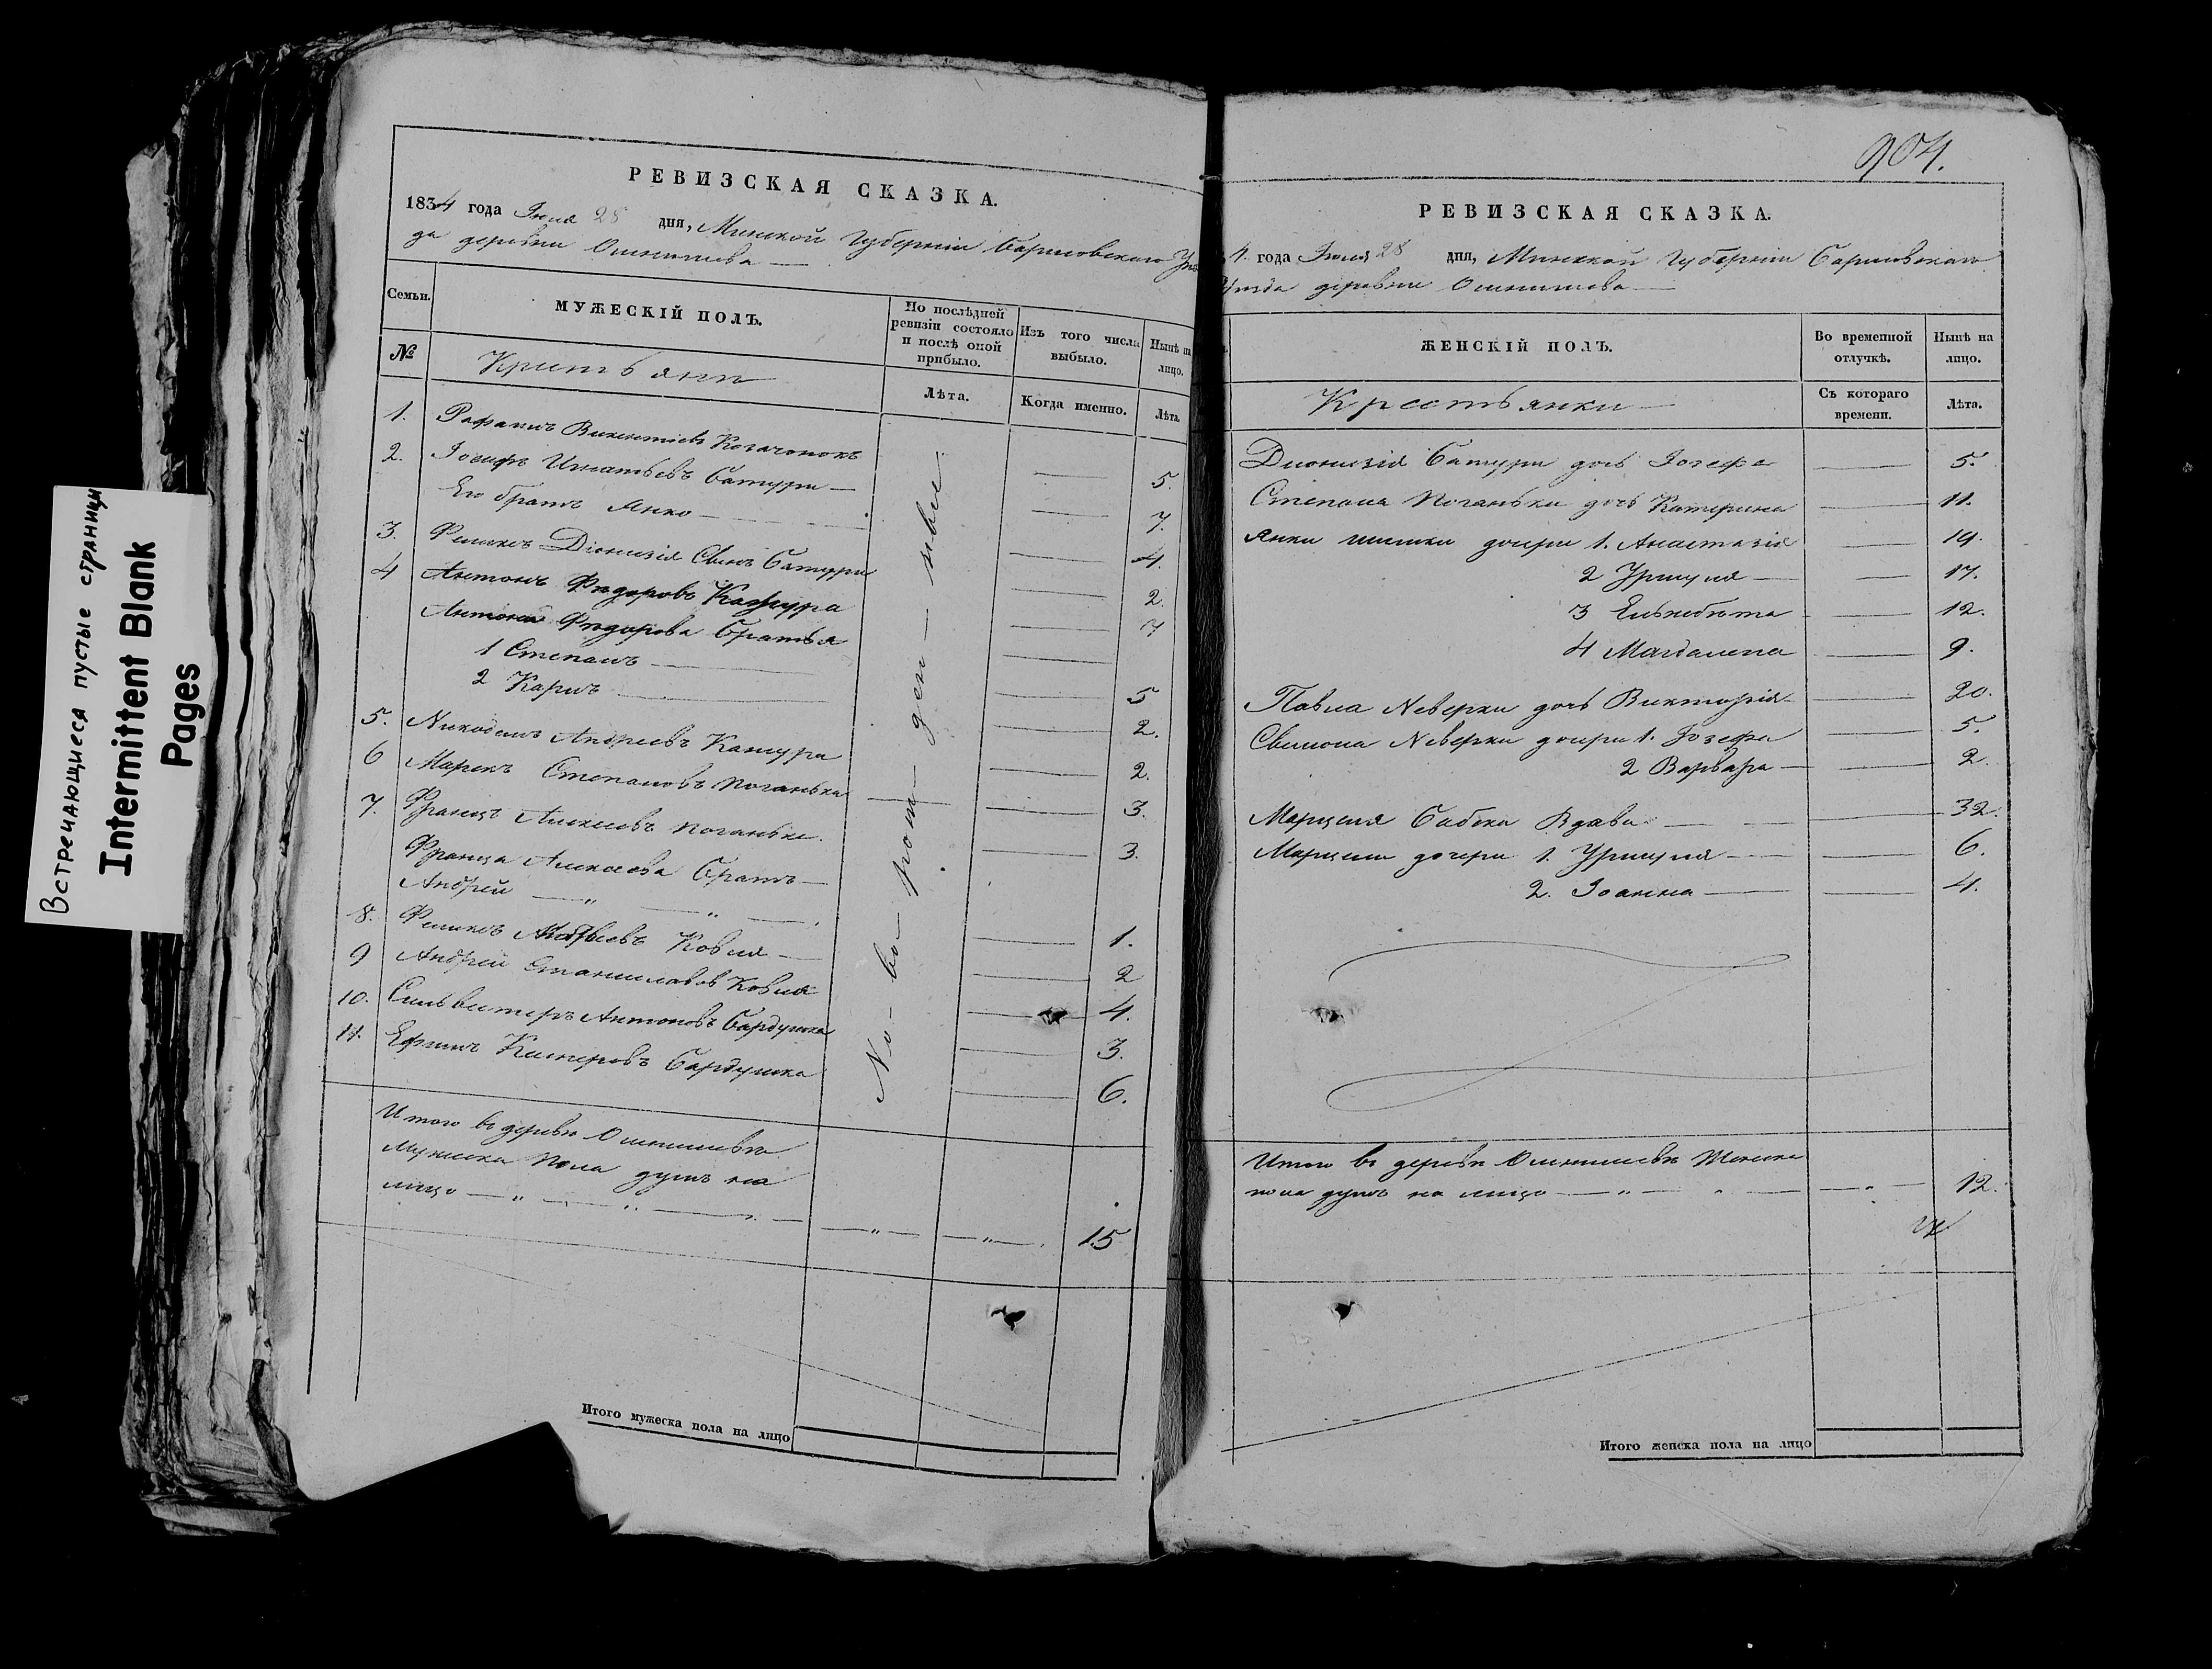 Встречающиеся пустые страницы
Intermittent Blank
Pages
РЕВИЗСКАЯ СКАЗКА.
1834 года Июля 28 дня, Минской Губерніи Борисовскаго Уѣз
да деревни
Семьи.
МУЖЕСКІЙ ПОЛЪ.
По послѣдней ревизіи состояло и послѣ оной прибыло.
Изъ того числа выбыло.
Нынѣ на лицо.
№
Крестьяне
Лѣта.
Когда именно.
Лѣта.
Но-во-рож-ден-ные
1. Викентіевъ 5.
2. Іосифъ Игнатьевъ Батура 7.
Его братъ Янко 4.
3. Феликсъ Діонизія Сынъ Батуры 2.
4 Антонъ Ѳедоровъ 7
Антона Ѳедорова братья
1 Степанъ 5
2 Карлъ 2.
5. Никодимъ Андреевъ 2.
6 Марекъ Степановъ Поганька 3.
7. Францъ Алексѣевъ Поганька. 3.
Франца Алексѣева братъ
Андрей 1.
8. Феликсъ Ковля 2
9 Андрей Станиславовъ Ковля 4.
10. Сильвестеръ Антоновъ Бардушка 3.
11. Ефимъ Бардушка 6.
Итого въ деревнѣ
мужеска пола душъ на
лицо 15
Итого мужеска пола на лицо
904.
РЕВИЗСКАЯ СКАЗКА.
4. года Іюля 28 дня, Минской Губерніи Борисовскаго
Уѣзда деревни
ЖЕНСКІЙ ПОЛЪ.
Во временной отлучкѣ.
Нынѣ на лицо.
Крестьянки
Съ котораго времени.
Лѣта.
Дионизія Батуры дочь Іозефа 5.
Степана Поганьки дочь Катерина 11.
Янки дочери 1. Анастазія 19.
2 Уршуля 17.
3 Ельжбѣта 12.
4 Магдалена 9.
Павла Неверки дочь Викторія 20.
Неверки дочери 1. Іозефа 5.
2 Варвара 2.
Марцеля Вдова 32.
Марцели дочери 1. Уршуля 6.
2. Іоанна 4.
Итого въ деревнѣ Женска
пола душъ на лицо 12.
Итого женска пола на лицо